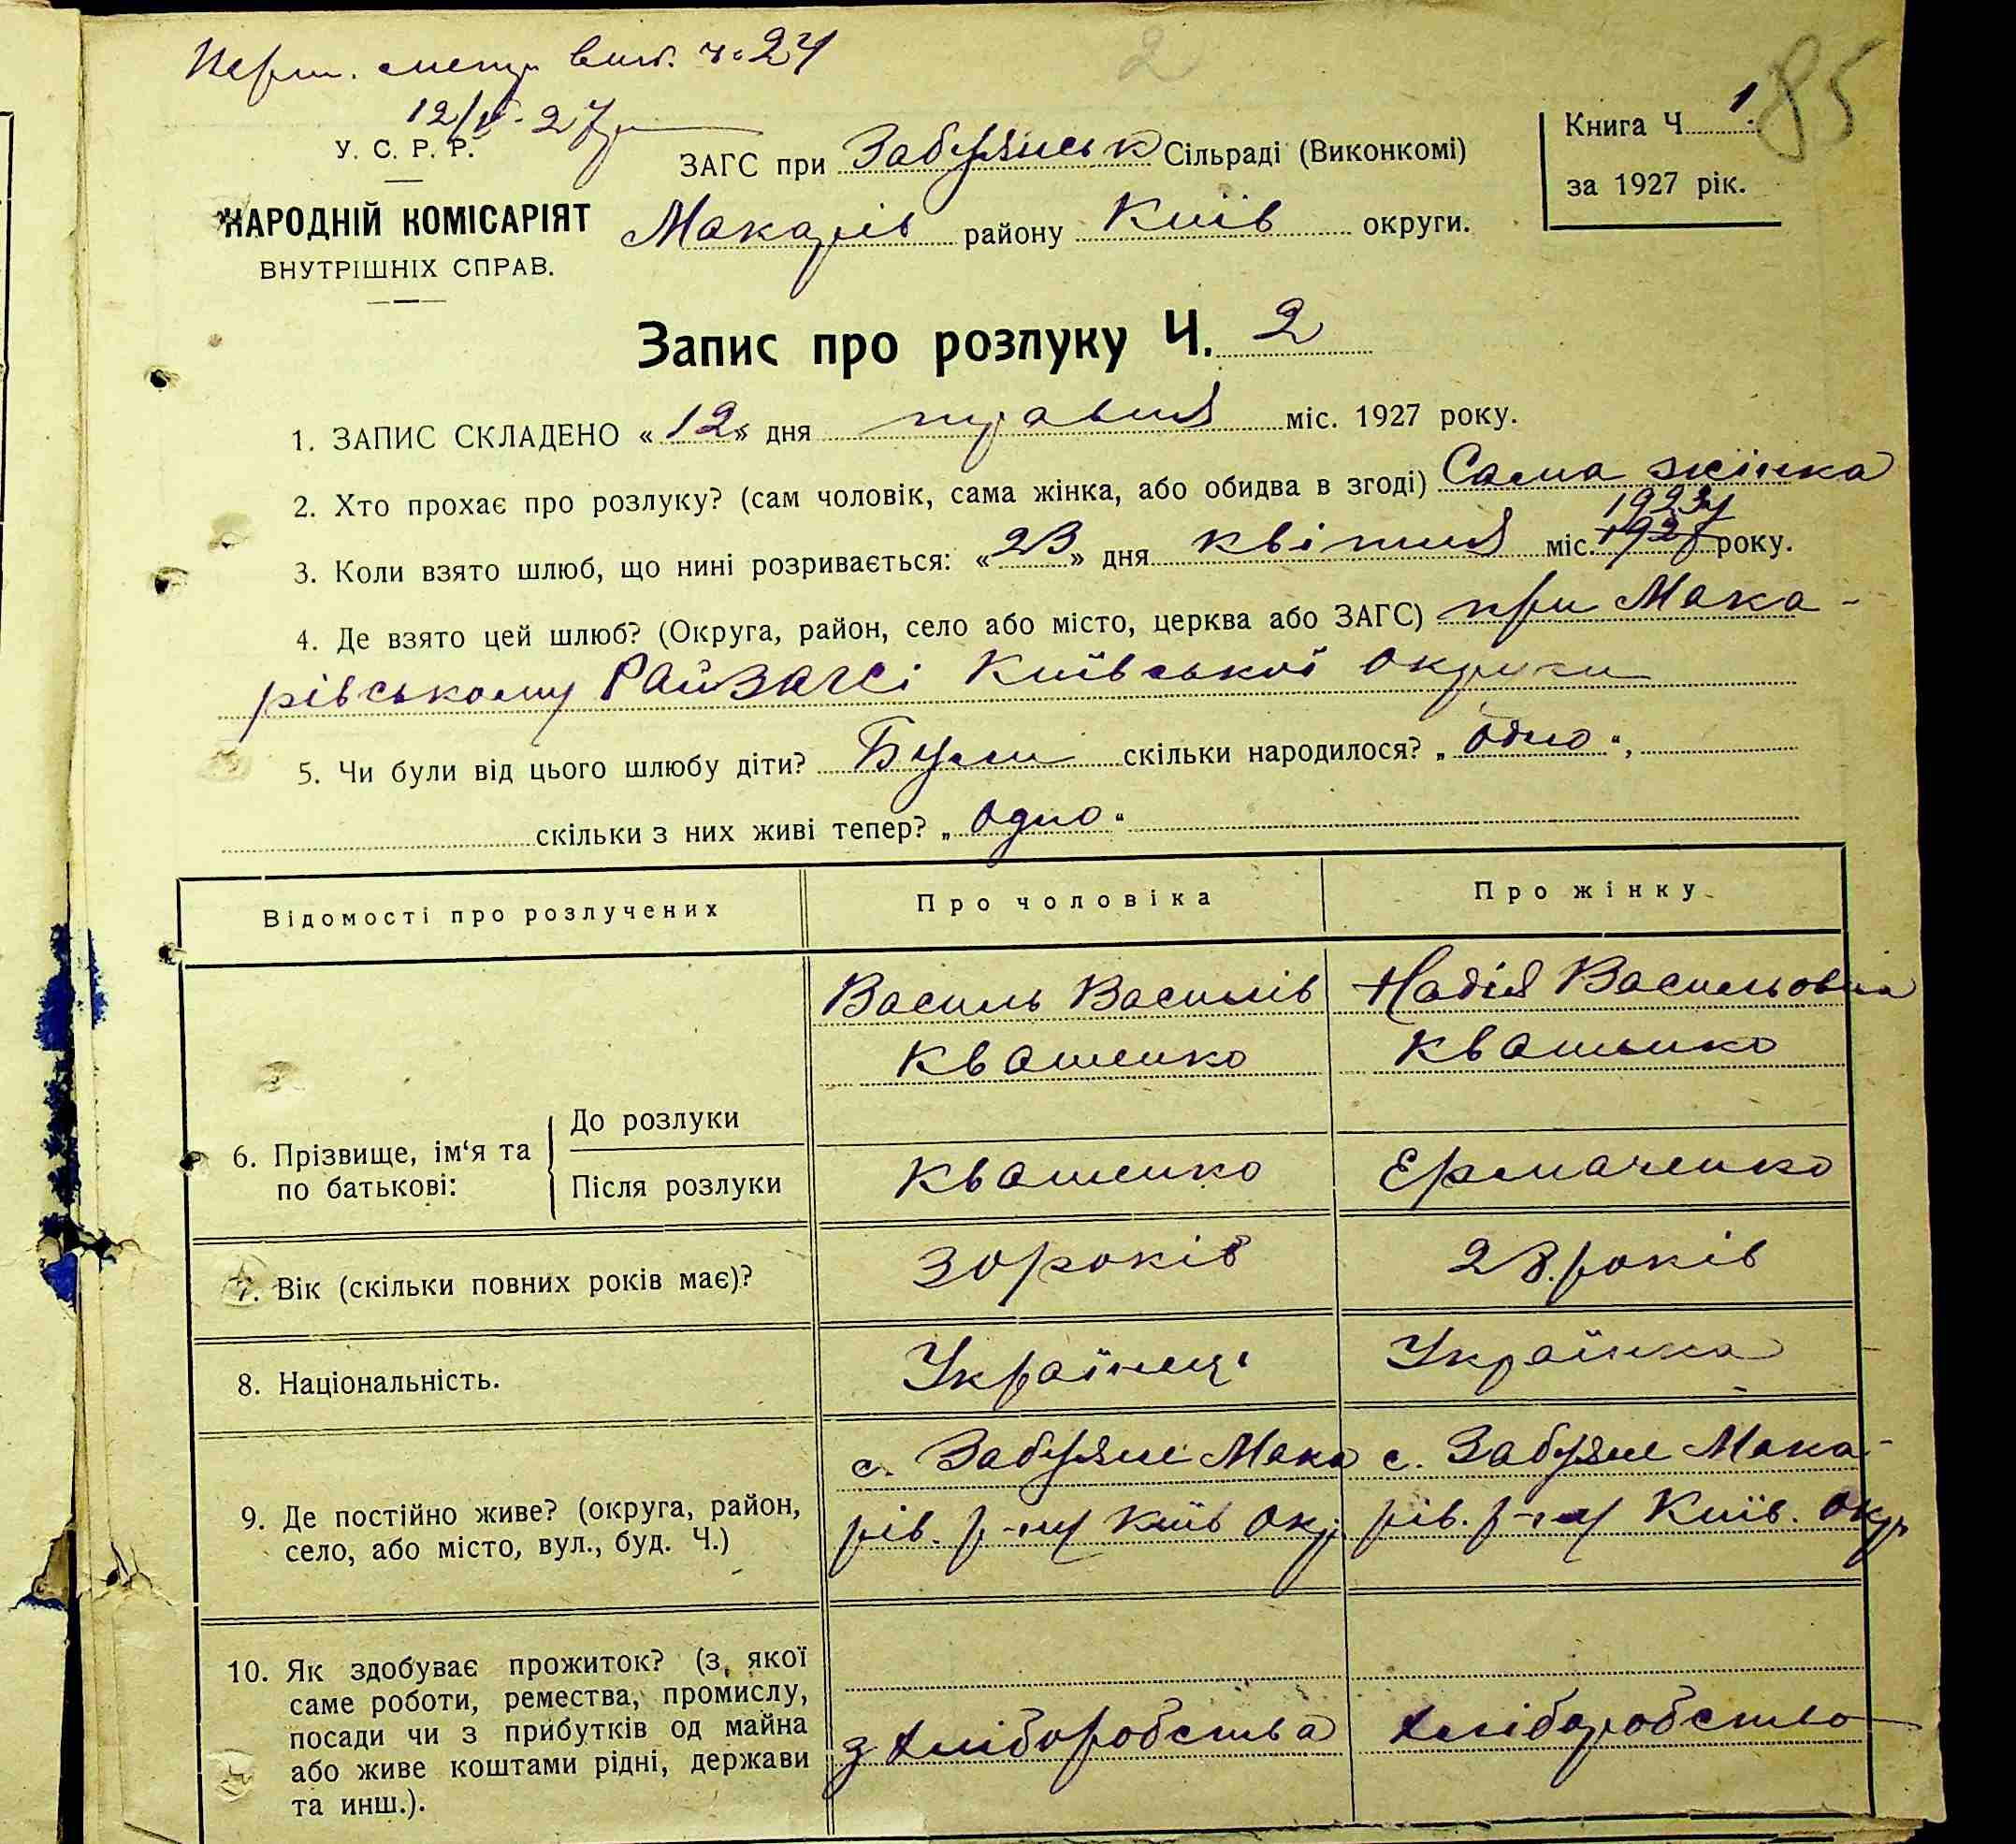 2
85
12/V-27р
У. С. Р. Р.
НАРОДНІЙ КОМІСАРІЯТ
ВНУТРІШНІХ СПРАВ.
ЗАГС при Забуянськ Сільраді (Виконкомі)
Макарів району Київ округи.
Книга Ч 1.
за 1927 рік.
Запис про розлуку Ч. 2
1. ЗАПИС СКЛАДЕНО «12» дня травня міс. 1927 року.
2. Хто прохає про розлуку? (сам чоловік, сама жінка, або обидва в згоді) Сама жінка
1923
3. Коли взято шлюб, що нині розривається: «23» дня квітня міс. року.
4. Де взято цей шлюб? (Округа, район, село або місто, церква або ЗАГС) при Мака-
рівському РайЗАГСі Київської округи
5. Чи були від цього шлюбу діти? Були скільки народилося? „одно“,
скільки з них живі тепер? „одно“
Відомості про розлучених Про чоловіка Про жінку
Василь Василів Надія Васильовна
Квашенко Квашенко
6. Прізвище, ім‘я та по батькові:
До розлуки
Після розлуки Квашенко Ермаченко
7. Вік (скільки повних років має)? 30 років 28. років
8. Національність. Українець Українка
9. Де постійно живе? (округа, район,
село, або місто, вул., буд. Ч.)
с. Забуяне Мака
рів. р-ну Київ Окр.
с. Забуяне Мака-
рів. р-ну Київ. Окр
10. Як здобуває прожиток? (з якої
саме роботи, ремества, промислу,
посади чи з прибутків од майна
або живе коштами рідні, держави
та инш.).
з хліборобства хліборобство